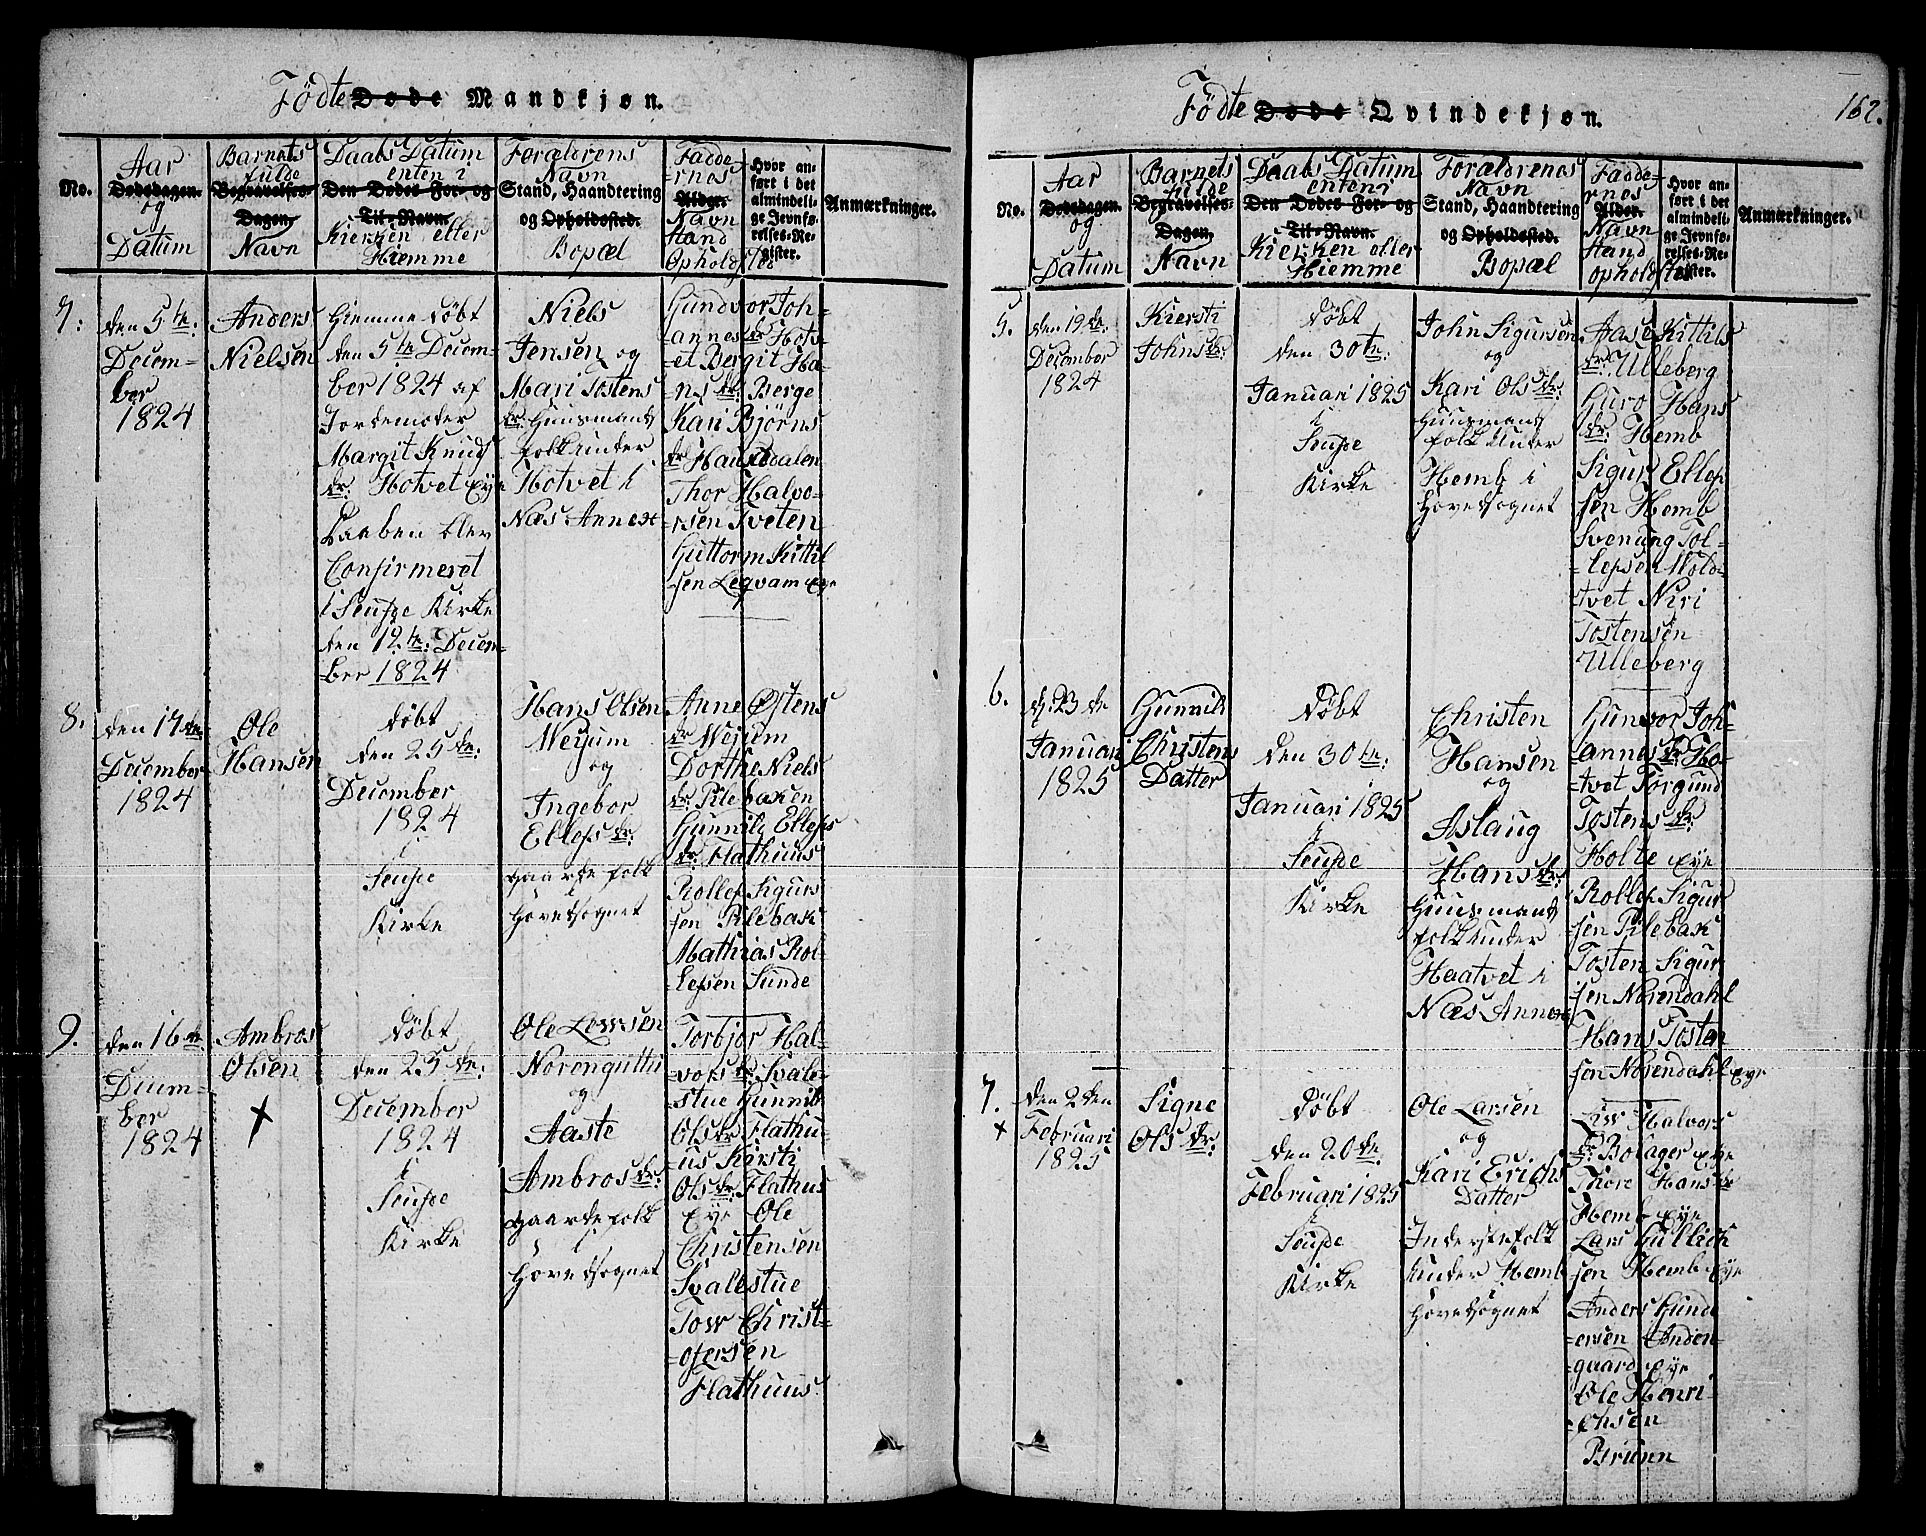 Födte Døde Mandkjøn.
No.
Aar
Dødsdagen.
og
Datum
Barnets
fulde
Begravelses-
Dagen.
Navn
Daabs Datum
enten i
Den Dødes For- og
Til-Navn.
Kierken eller
Hiemme
Forældrens
Navn
Stand, Haandtering
og Opholdssted.
Bopæl
Fadde-
-rnes
Alder.
Navn
Stand
Opholdsted
Hvor an-
ført i det
almindeli-
ge Jevnfø-
relses-Re-
gister.
Anmærkninger.
7.
den 5te
Decem-
ber
1824
Anders
Nielsen
Hiemme døbt
den 5te Decem-
ber 1824 af
Jordemoder
Margit Knuds
dr. Hotvet Eye
Daaben blev
Confirmeret
i Seufde Kirke
den 12te Decem-
ber 1824
Niels
Jensen og
Mari Tostens
dr. Huusmands
folk under
Hotvet i
Næs Annex
Gundvor Joh-
annes dr. Hotv-
et Bergit Ha-
ns dr. Berge
Kari Bjørns
dr. Haugdalen
Thor Halvo-
-rsen Tveten
Guttorm Kittil
sen Leqvam Eye
8.
den 17de
December
1824
Ole
Hansen
døbt
den 25de
December
1824
i
Seufde
Kirke
Hans Olsen
Meyum
og
Ingebor
Ellefs dr.
Gaardefolk
i
Hovedsognet
Anne Østens
dr. Meyum
Dorthe Niels
dr. Pilebaken
Gunnild Ellefs
dr. Flathuus
Rollef Sigurs
sen Pilebak
Mathias Rol-
lefsen Sunde
9.
den 16de
Decem-
ber
1824
Ambros
Olsen
døbt
den 25de
December
1824
i
Seufde
Kirke
Ole Lowsen
Norengutti
og
Aaste
Ambros dr.
Gaardefolk
i
Hovedsognet
Torbjor Hal-
vors dr. Svale-
-stue Gunnild
Ols dr. Flathu-
us Kirsti
Ols dr. Flathus
Eye Ole
Christensen
Svalestue
Tow Christ-
-ofersen
Flathuus
Födte Døde Qvindekjøn.
162.
No.
Aar
Dødsdagen.
og
Datum
Barnets
fulde
Begravelses-
Dagen.
Navn
Daabs Datum
enten i
Den Dødes For- og
Til-Navn.
Kierken eller
Hiemme
Forældrenes
Navn
Stand, Haandtering
og Opholdssted.
Bopæl
Fadde-
rnes
Alder.
Navn
Stand
opholdsted
Hvor an-
ført i det
almindeli-
ge Jevnfø-
relses-Re-
gister.
Anmærkninger.
5.
den 19de
December
1824
Kiersti
Johns dr.
døbt
den 30te
Januari 1825
i
Seufde
Kirke
John Sigursen
og
Kari Ols dr.
Huusmands
folk under
Hemb i
Hovedsognet
Aase Kittils
dr. Ulleberg
Guro Hans
dr. Hemb
Sigur Ellef
sen Hemb
Svenung Tol-
-lefsen Hold-
-tvet Niri
Tostensen
Ulleberg
6.
d: 23de
Januari
1825
Gunnild
Christens
Datter
døbt
den 30te
Januari 1825
i
Seufde
Kirke
Christen
Hansen
og
Aslaug
Hans dr.
Huusmands
folk under
Haatvet i
Næs Annex
Gunvor Joh-
annes dr. Ho-
-tvet Torgund
Tostens dr.
Holte Eye
Rollef Sigur
sen Pilebak
Tosten Sigur
sen Norendahl
Hans Tosten
sen Norendahl Eye
7.
den 2den
Februari
1825
Signe
Ols dr.
døbt
den 20de
Februari 1825
i
Seufde
Kirke
Ole Larsen
og
Kari Erichs
Datter
Inderstefolk
under Hemb
Hovedsognet
Liw Halvors
dr. Bolager Eye
Thore Hans dr
Hemb Eye
Lars Gullich
sen Hemb Eye
Anders Gund
-ersen Anden-
-gaard Eye
Ole Henri-
-chsen
Brunn